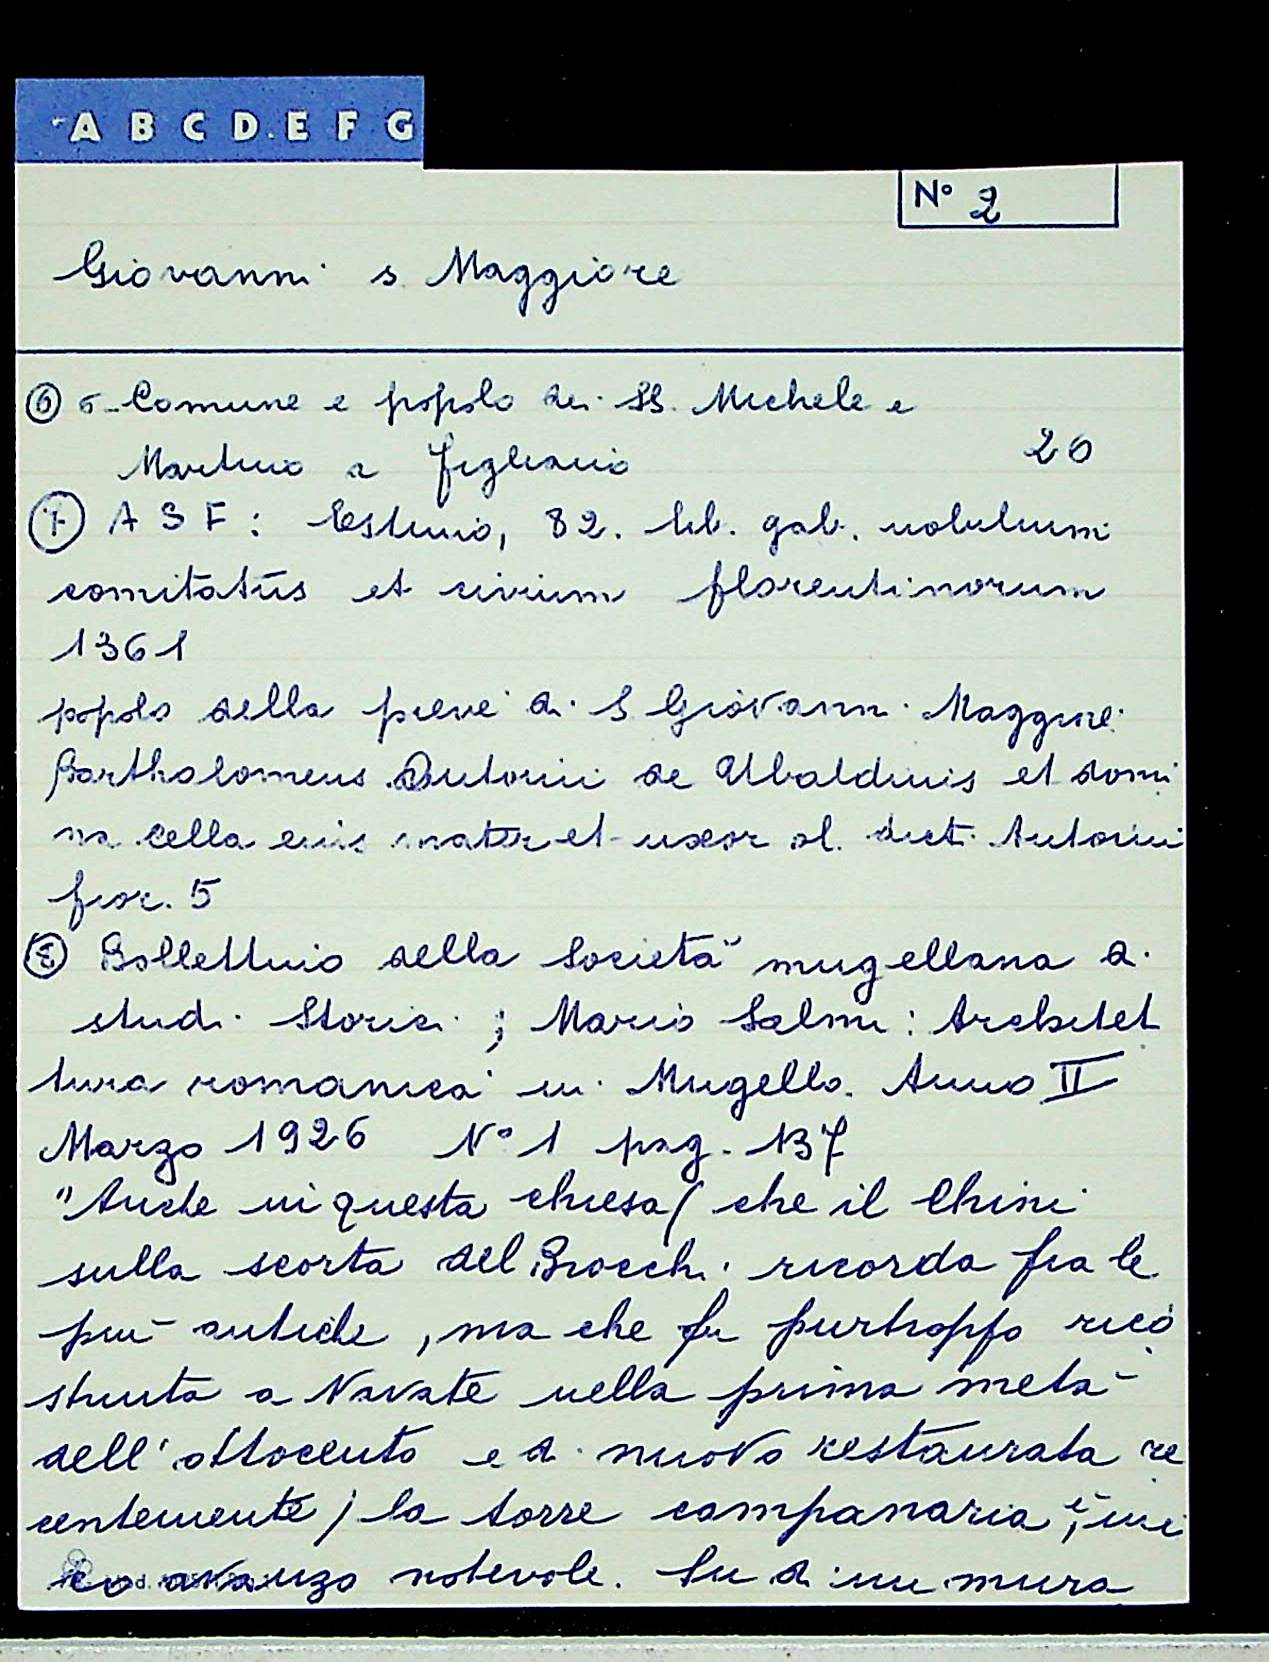 A B C D E F G
N° 2
Giovanni s. Maggiore
⑥ 6- Comune e popolo dei SS. Michele e
Martino a Figliano 20
⑦ A S F: Estimo, 82. lib. gab. nobilium
comitatūs et civium florentinorum
1361
popolo della pieve di S Giovanni Maggiore
Bartholomeus Antonii de Ubaldinis et domi
na Cella eius mater et uxor ol. dict. Antonii
fior. 5
⑧ Bollettino della Società mugellana di
studi Storici ; Mario Salmi: Architet
tura romanica in Mugello. Anno II
Marzo 1926 N° 1 pag. 137
"Anche in questa chiesa ( che il Chini
sulla scorta del Brocchi ricorda fra le
più antiche , ma che fu purtroppo rico
struita a Navate nella prima metà
dell'ottocento e di nuovo restaurata re
centemente ) la torre campanaria è, uni
co avanzo notevole. Su di un mura